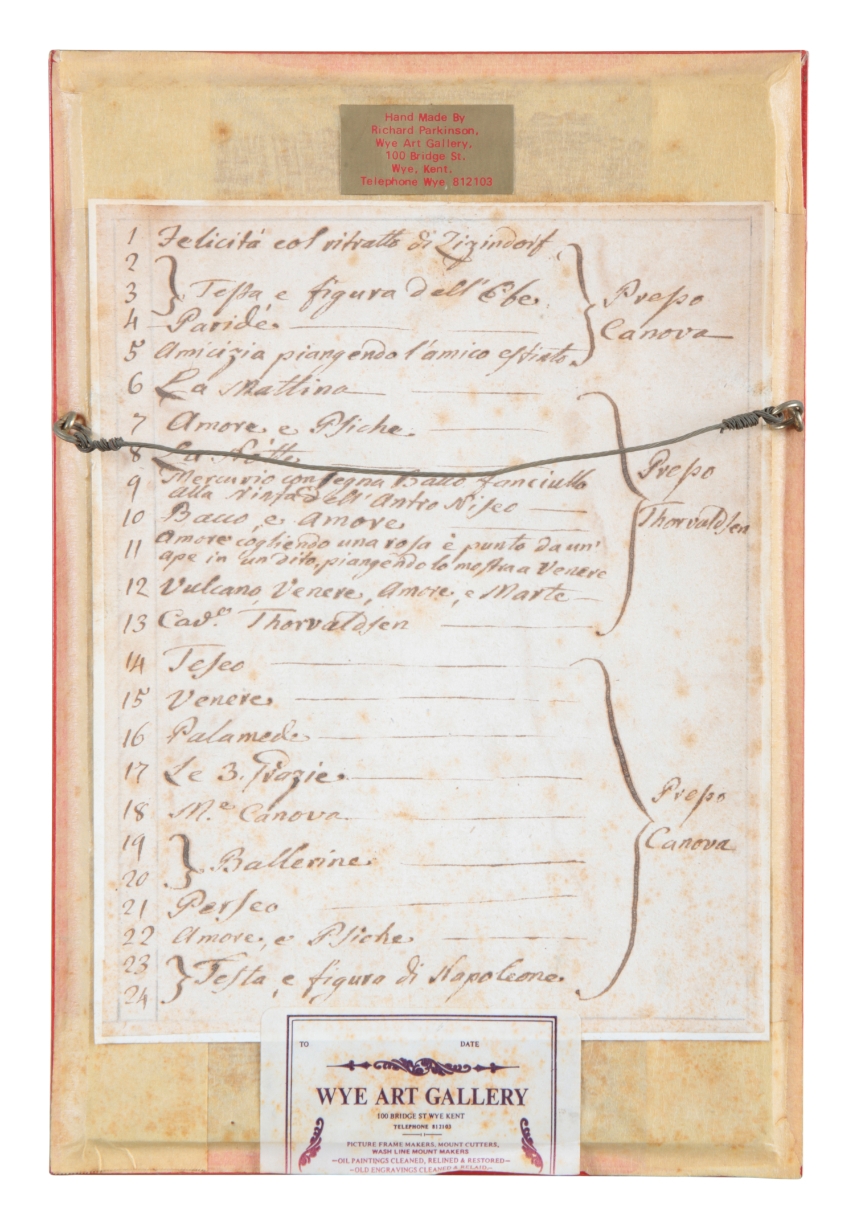 Hand Made By
Richard Parkinson,
Wye Art Gallery,
100 Bridge St.
Wye, Kent.
Telephone Wye 812103
1 Felicitá col ritratto di Zizindorf
2
3 Testa, e figura dell' Ebe
4 Paride
5 Amicizia piangendo l'amico estinto
Presso
Canova
6 La Mattina
7 Amore, e Psiche
8 La Notte
9 Mercurio consegna Bacco fanciullo
alla Ninfa dell' Antro Niseo
10 Bacco, e Amore
11 Amore cogliendo una rosa è punto da un'
ape in un dito, piangendo lo mostra a Venere
12 Vulcano, Venere, Amore, e Marte
13 Cav.e Thorvaldsen
Presso
Thorvaldsen
14 Teseo
15 Venere
16 Palamede
17 Le 3. Grazie
18 M.e Canova
19
20 Ballerine
21 Perseo
22 Amore, e Psiche
23
24 Testa, e figura di Napoleone
Presso
Canova
TO DATE
WYE ART GALLERY
100 BRIDGE ST. WYE KENT
TELEPHONE 812103
PICTURE FRAME MAKERS, MOUNT CUTTERS,
WASH LINE MOUNT MAKERS
—OIL PAINTINGS CLEANED, RELINED & RESTORED—
—OLD ENGRAVINGS CLEANED & RELAID—